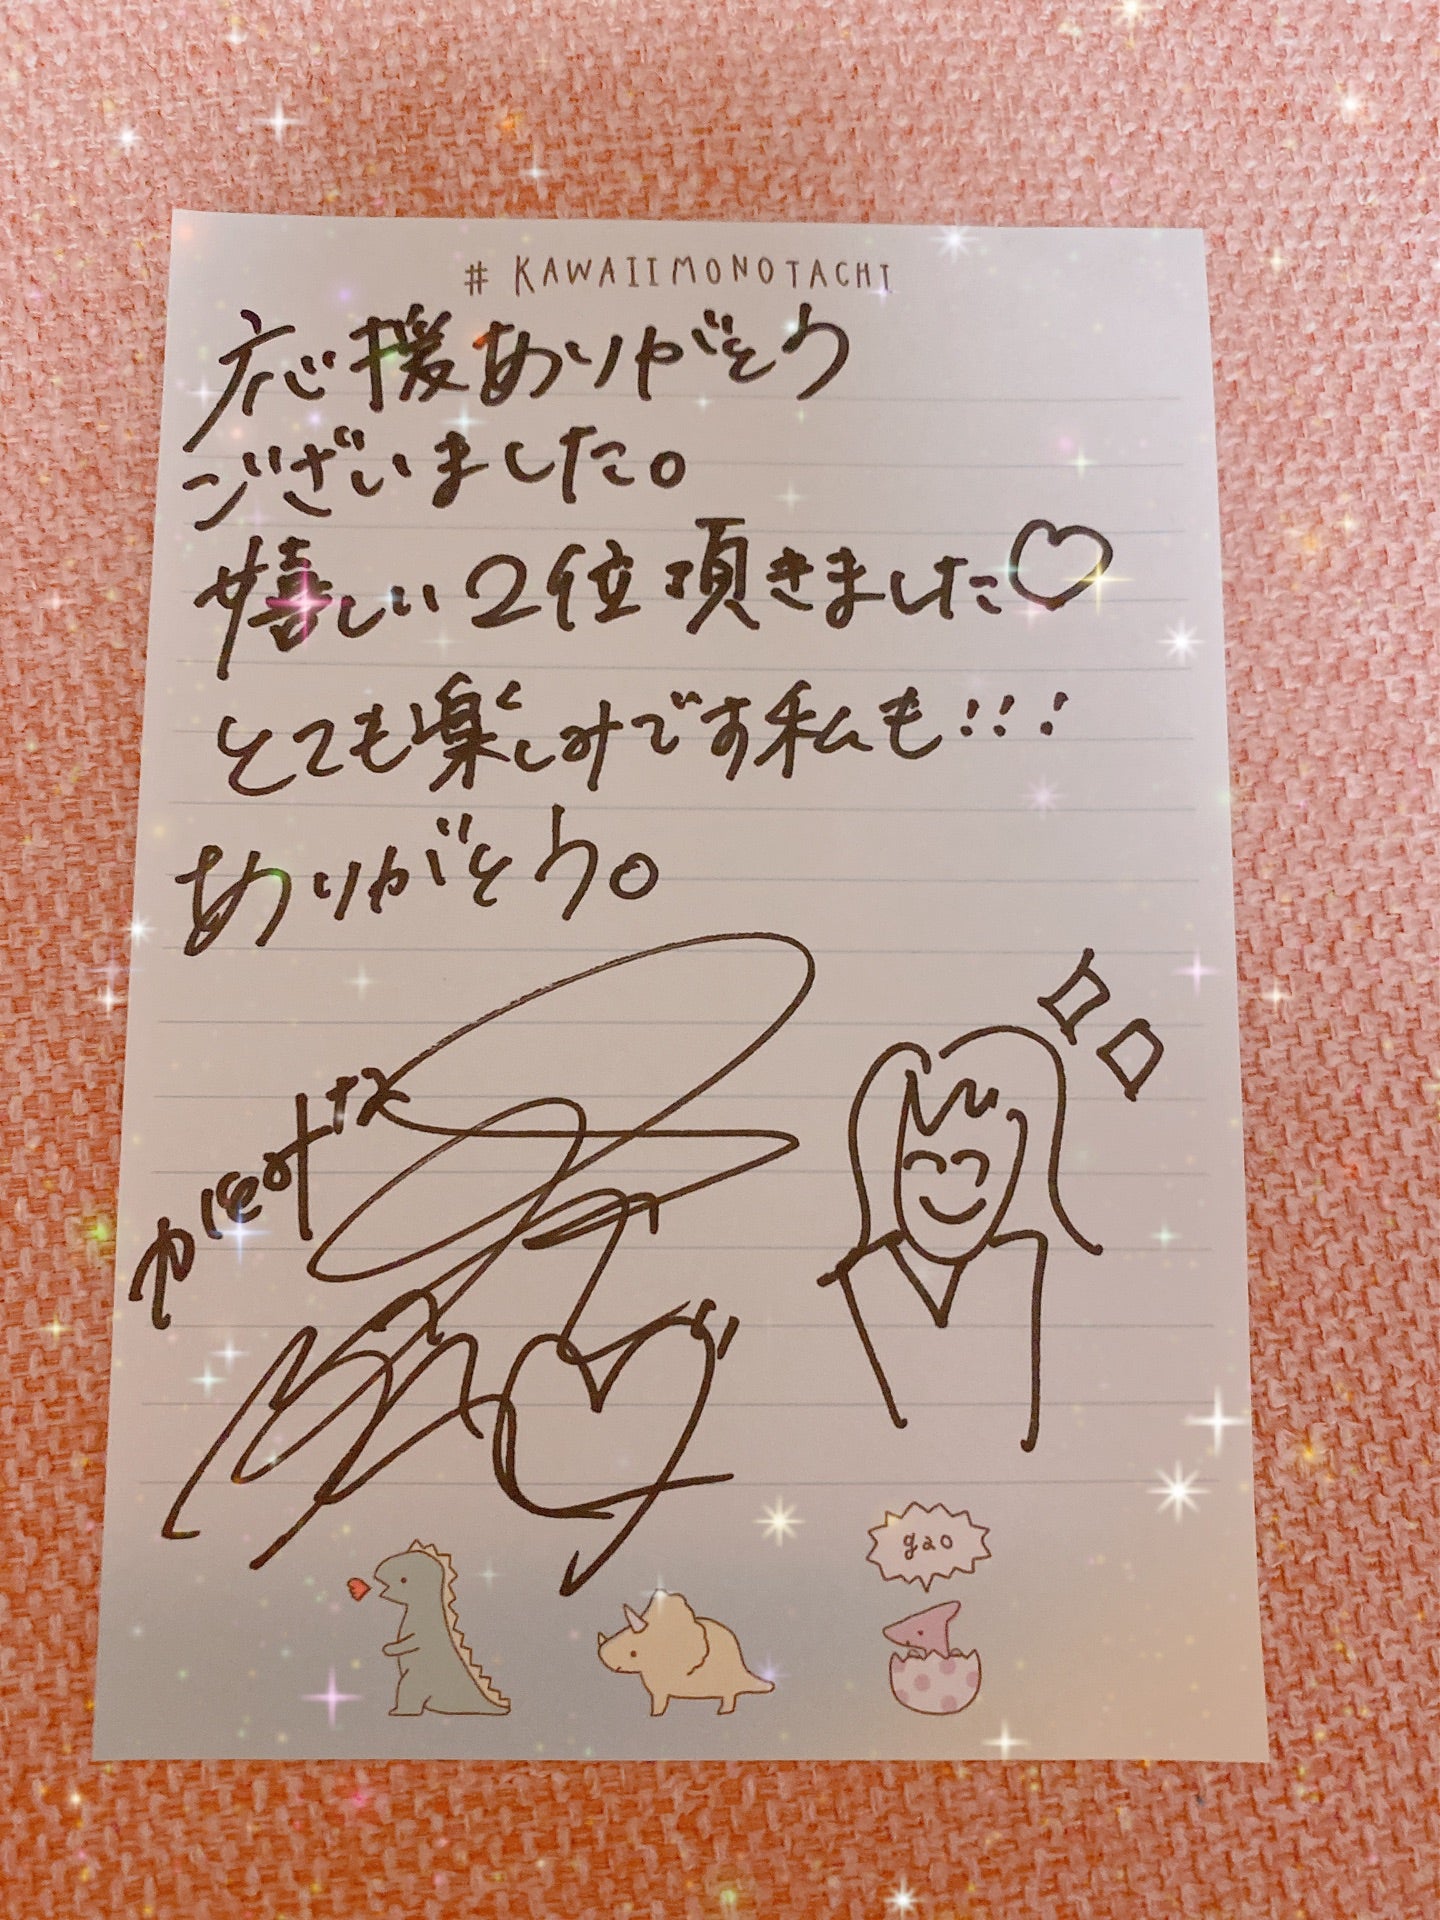 # KAWAIIMONOTACHI
応援ありがとう
ございました。
嬉しい2位頂きました♡
とても楽しみです私も!!!
ありがとう。
gao